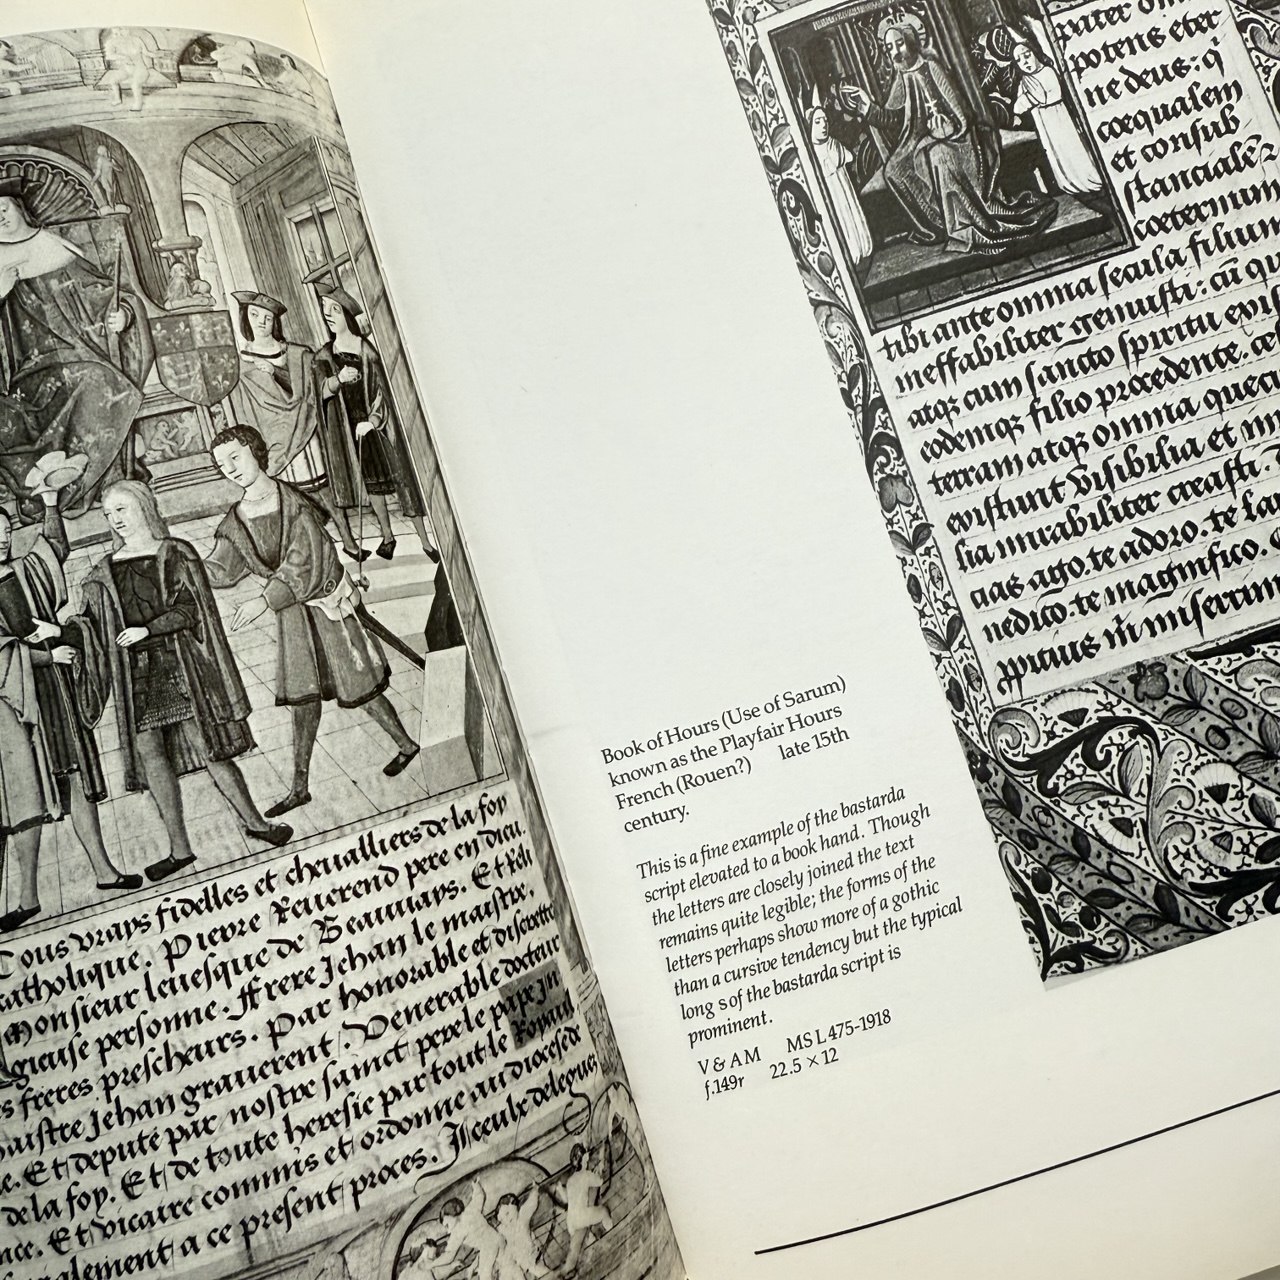 Tous vrays fidelles et cheualliers de la foy
catholique. Pierre Reuerend pere en dieu.
Monsieur leuesque de Beauuays. Et Reli
gieuse personne. Frere Jehan le maistre.
s freres prescheurs. Par honorable et discrette
maistre Jehan grauerent. Venerable docteur
ce. Et depute par nostre sainct pere le pape In
de la foy. Et de toute heresie par tout le Royaul
nce. Et vicaire commis et ordonne au diocese de
a ce present proces. Iceulx deleguez
Book of Hours (Use of Sarum)
known as the Playfair Hours
French (Rouen?) late 15th
century.
This is a fine example of the bastarda
script elevated to a book hand. Though
the letters are closely joined the text
remains quite legible; the forms of the
letters perhaps show more of a gothic
than a cursive tendency but the typical
long s of the bastarda script is
prominent.
V & A M MS L 475-1918
f.149r 22.5 × 12
pater om
potens eter
ne deus: q̇
coequalem
et consub
stanciale
coeternum
tibi ante omnia secula filium
ineffabiliter genuisti: cū qu
atqꝫ cum sancto spiritu exis
eodemqꝫ filio procedente. ce
terram atqꝫ omnia quecū
existunt visibilia et in
lia mirabiliter creasti. T
aas ago. te adoro. te lau
nedico. te magnifico.
ppitius m̄ miserrim